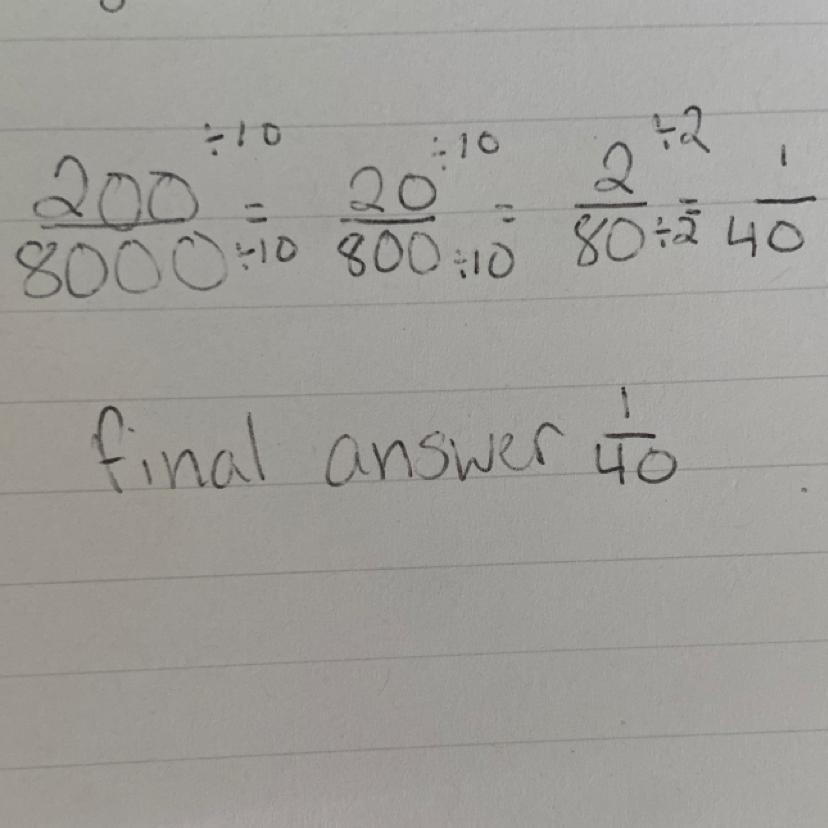 200/8000 ÷10/÷10 = 20/800 ÷10/÷10 = 2/80 ÷2/÷2 = 1/40
final answer 1/40